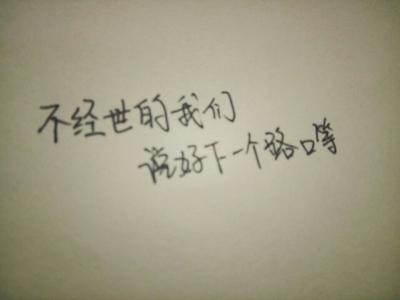 不经世的我们
说好下一个路口等